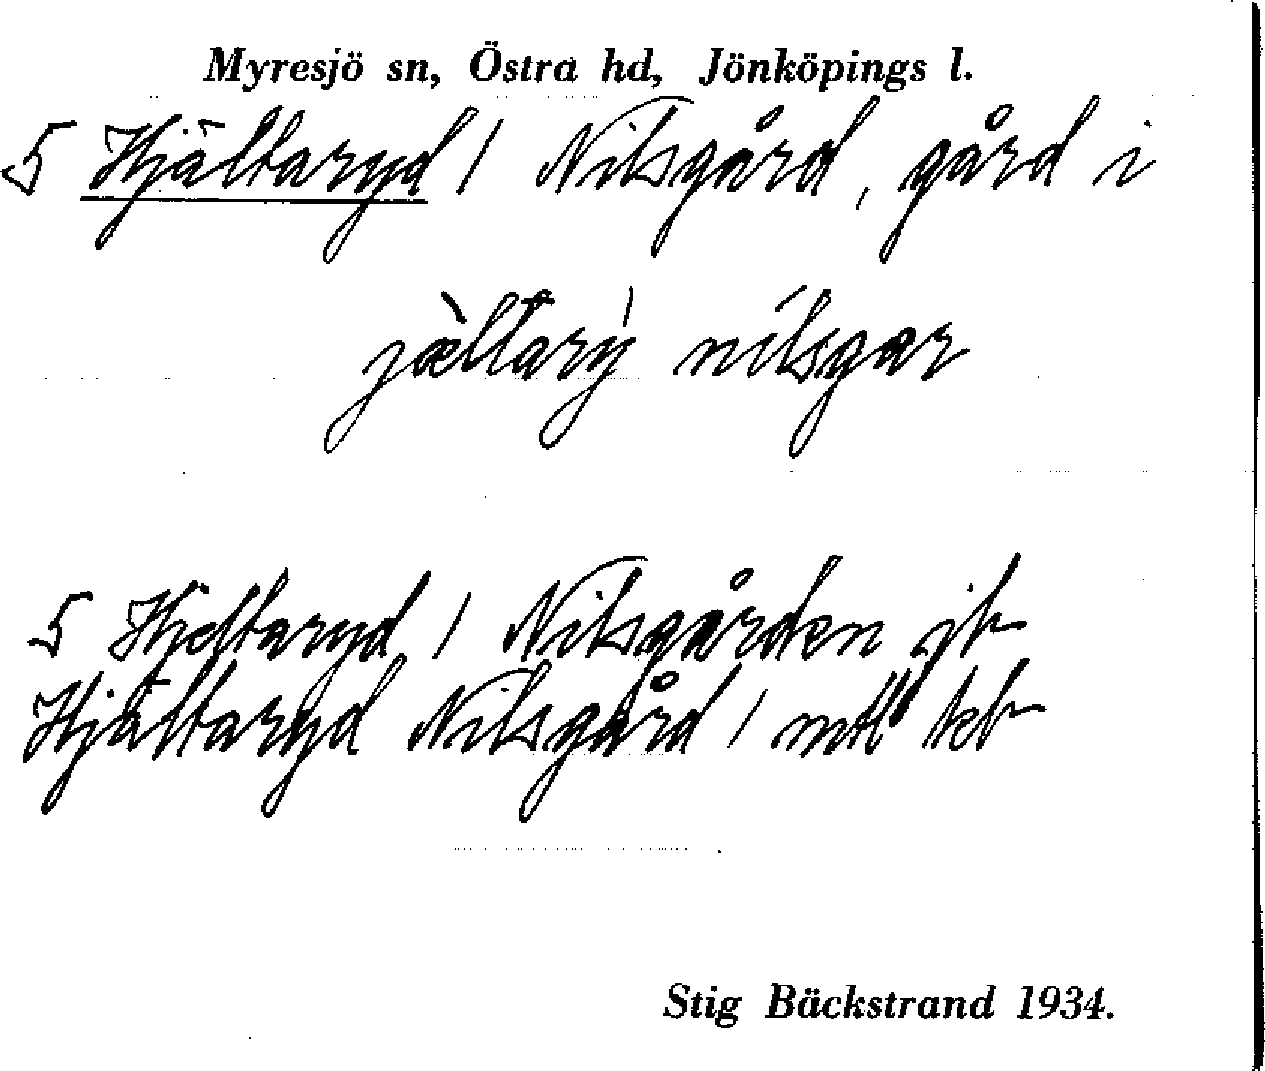 Myresjö sn, Östra hd, Jönköpings l.
5 Hjältaryd / Nilsgård, gård i
jæ̀ltarý nílsgar
5 Hjeltaryd / Nilsgården jb
Hjältaryd Nilsgård / mtl kb
Stig Bäckstrand 1934.